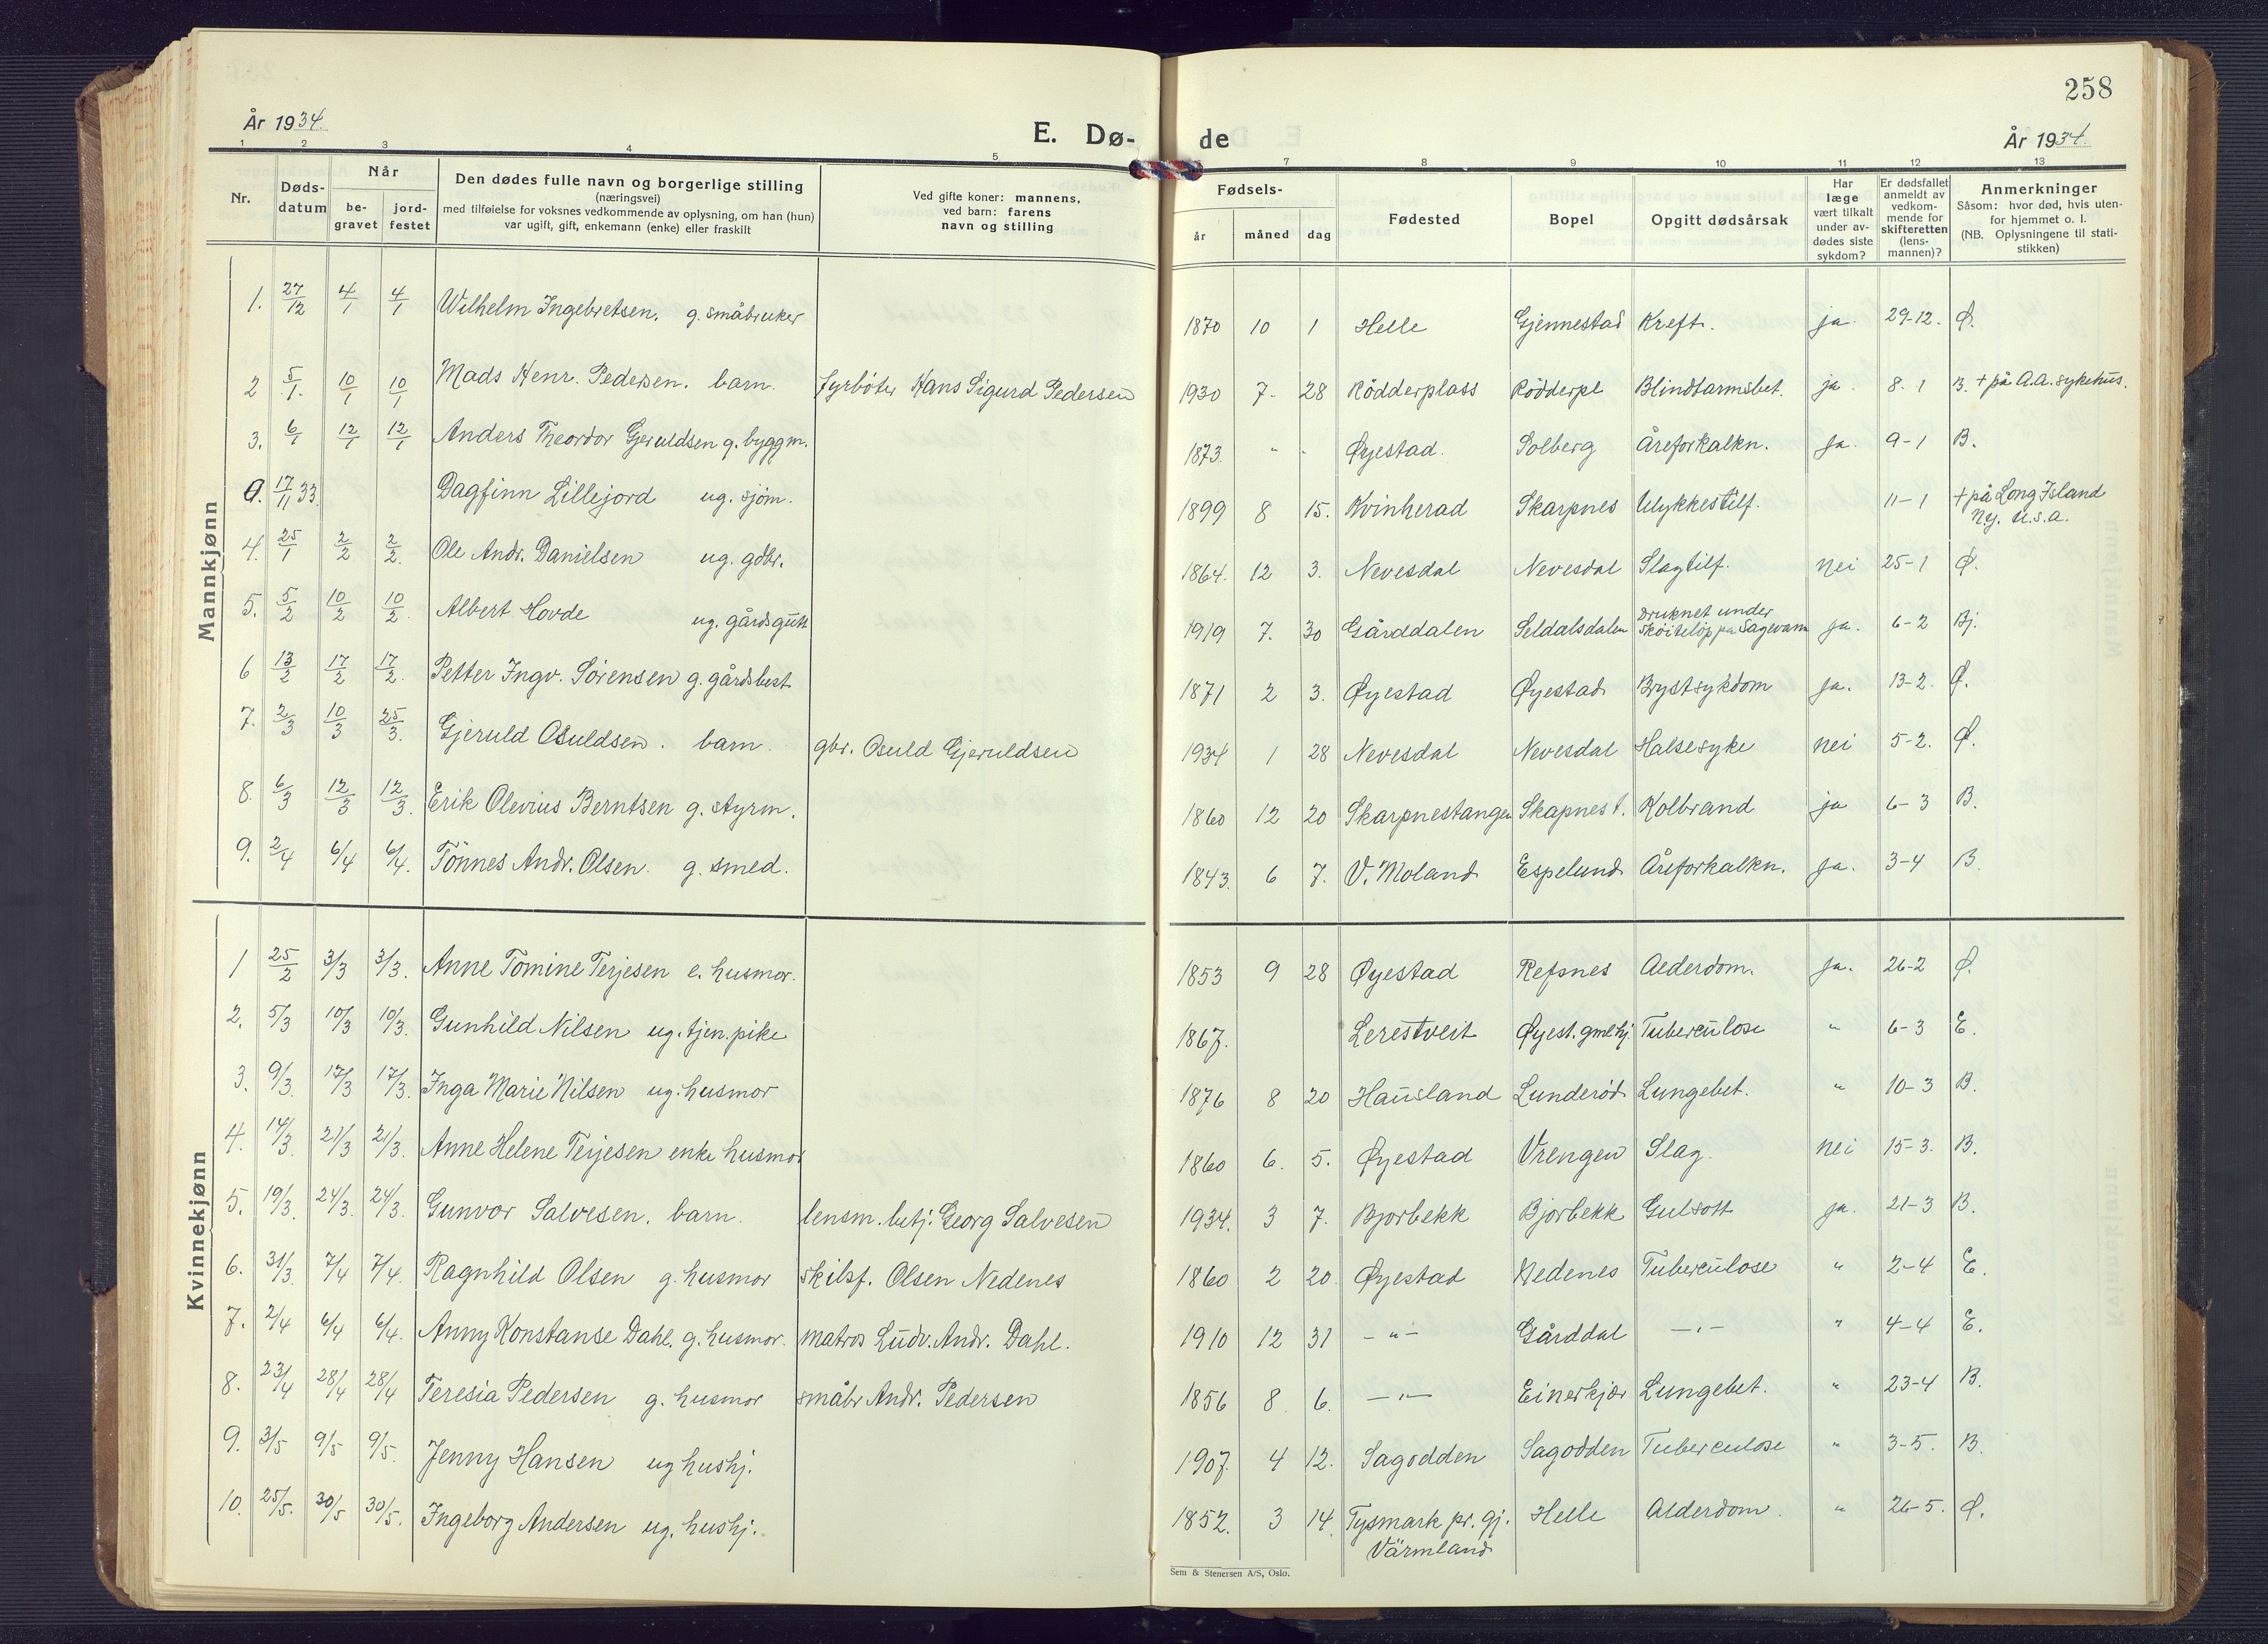 258
År 1934.
E. Dø-
de
År 1934.
1 2 3 4 5 7 8 9 10 11 12 13
Nr.
Døds-
datum
Når
be-
gravet
jord-
festet
Den dødes fulle navn og borgerlige stilling
(næringsvei)
med tilføielse for voksnes vedkommende av oplysning, om han (hun)
var ugift, gift, enkemann (enke) eller fraskilt
Ved gifte koner: mannens,
ved barn: farens
navn og stilling
Fødsels-
år måned dag
Fødested
Bopel
Opgitt dødsårsak
Har
læge
vært tilkalt
under av-
dødes siste
sykdom?
Er dødsfallet
anmeldt av
vedkom-
mende for
skifteretten
(lens-
mannen)?
Anmerkninger
Såsom: hvor død, hvis uten-
for hjemmet o. l.
(NB. Oplysningene til stati-
stikken)
Mannkjønn
1. 27/12 4/1 4/1 Wilhelm Ingebretsen. g. småbruker 1870 10 1 Helle Gjennestad Kreft. ja. 29-12. Ø.
2 5/1. 10/1 10/1 Mads Henr. Pedersen. barn. fyrbøter Hans Sigurd Pedersen 1930 7- 28 Rödderplass Rödderpl Blindtarmsbet. ja. 8-1 B. + på A.A. sykehus.
3. 6/1 12/1 12/1 Anders Theordor Gjeruldsen g. byggm. 1873 " " Øyestad. Solberg Åreforkalkn. ja. 9-1 B.
0. 17/11 33 Dagfinn Lillejord ug. sjöm. 1899 8 15. Kvinherad Skarpnes Ulykkestilf. 11-1 + på Long Island
Ny. U.S.A.
4. 25/1 2/2 2/2. Ole Andr. Danielsen ug. gdbr. 1864. 12 3. Nevesdal Nevesdal Slagtilf. nei 25-1 Ø.
5. 5/2 10/2 10/2. Albert Hovde ug. gårdsgutt 1919 7. 30 Gårddalen Seldalsdalen Druknet under
Sköiteløp på Sagevann ja. 6-2 Bj.
6 13/2 17/2 17/2. Petter Ingv. Sörensen g. gårdsbest. 1871 2 3. Øyestad Øyestad Brystsykdom ja. 13-2. Ø.
7. 2/3 10/3 25/3. Gjeruld Osuldsen. barn. gbr. Osuld Gjeruldsen 1934 1 28 Nevesdal Nevesdal Halsesyke nei 5-2. Ø.
8. 6/3 12/3 12/3. Erik Olevius Berntsen g. styrm. 1860 12 20 Skarpnestangen Skapnest. Kolbrand ja 6-3 B.
9. 2/4 6/4 6/4. Tönnes Andr. Olsen. g. smed. 1843. 6 7. V. Moland Espelund Åreforkalkn. ja. 3-4 B.
Kvinnekjønn
1 25/2 3/3 3/3. Anne Tomine Terjesen e. husmor. 1853 9 28 Øyestad Refsnes Alderdom. ja. 26-2 Ø.
2. 5/3 10/3 10/3. Gunhild Nilsen ug. tjen.pike 1867. Lerestveit Øyest. gmlhj. Tuberculose " 6-3 E.
3. 9/3 17/3 17/3. Inga Marie Nilsen ug. husmor 1876 8 20 Hausland Lunderöd Lungebet. " 10-3 B.
4. 14/3. 21/3 21/3. Anne Helene Terjesen enke husmor 1860 6. 5. Øyestad Vrengen Slag. nei 15-3. B.
5. 19/3. 24/3. 24/3. Gunvor Salvesen. barn. lensm. betj. Georg Salvesen 1934. 3 7. Bjorbekk Bjorbekk Gulsott ja. 21-3 B.
6. 31/3. 7/4 7/4. Ragnhild Olsen g. husmor skilsf. Olsen Nedenes 1860 2 20. Øyestad Nedenes Tuberculose " 2-4 E.
7. 2/4 6/4 6/4. Anny Konstanse Dahl. g. husmor. matros Ludv. Andr. Dahl. 1910 12 31 -"- Gårddal -"- " 4-4 E.
8. 23/4 28/4 28/4 Teresia Pedersen g. husmor småbr Andr. Pedersen 1856 8. 6. -"- Einerkjær Lungebet. " 23-4 B.
9. 3/5 9/5 9/5. Jenny Hansen ug hushj. 1907. 4 12. Sagodden Sagodden Tuberculose " 3-5. B.
10. 25/5. 30/5 30/5. Ingeborg Andersen ug. hushj. 1852. 3 14. Tysmark pr. gj.
Värmland Helle Alderdom. " 26-5. Ø.
Sem & Stenersen A/S, Oslo.